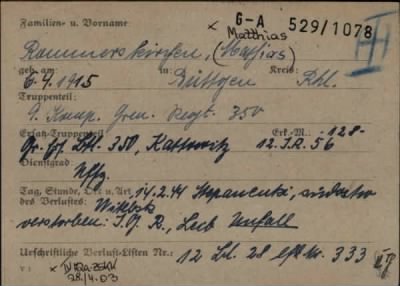 Familien- u. Vorname G-A 529/1078
x Matthias
Rommerskirchen, (Mathias)
geb. am in: Kreis:
6.4.1915 Büttgen Rhl.
Truppenteil:
9. Komp. Gren. Regt. 350
Ersatz-Truppenteil Erk.-M.: -128-
Gr. Btl. 350, Kattowitz 12. J.R. 56
Dienstgrad
Uffz.
Tag, Stunde, Ort u. Art 14.2.44 Stepanenki, südostw
des Verlustes: Witebsk
verstorben: Unfall
Urschriftliche Verlust-Listen Nr.: 12 Bl. 28 lfd. Nr. 333
v:
28/4.03